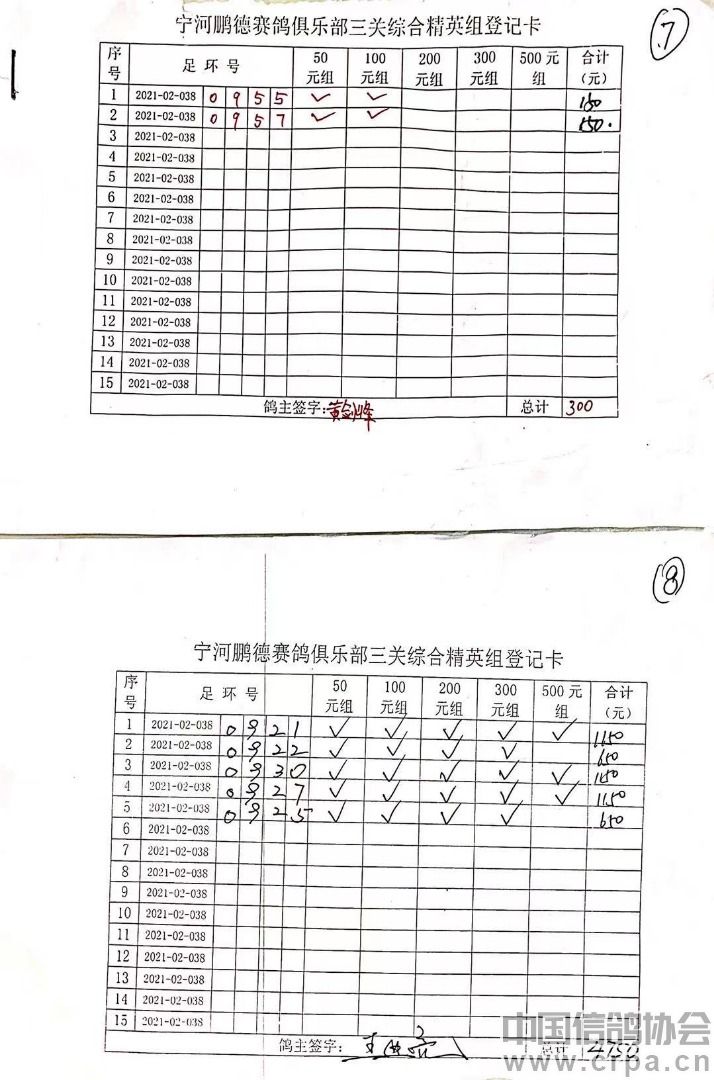 宁河鹏德赛鸽俱乐部三关综合精英组登记卡 ⑦
序号 足环号 50元组 100元组 200元组 300元组 500元组 合计(元)
1 2021-02-038 0955 ✓ ✓ 150
2 2021-02-038 0957 ✓ ✓ 150.
3 2021-02-038
4 2021-02-038
5 2021-02-038
6 2021-02-038
7 2021-02-038
8 2021-02-038
9 2021-02-038
10 2021-02-038
11 2021-02-038
12 2021-02-038
13 2021-02-038
14 2021-02-038
15 2021-02-038
鸽主签字:黄剑峰 总计 300
⑧
宁河鹏德赛鸽俱乐部三关综合精英组登记卡
序号 足环号 50元组 100元组 200元组 300元组 500元组 合计(元)
1 2021-02-038 0921 ✓ ✓ ✓ ✓ ✓ 1150
2 2021-02-038 0922 ✓ ✓ ✓ ✓ 650
3 2021-02-038 0930 ✓ ✓ ✓ ✓ ✓ 1150
4 2021-02-038 0927 ✓ ✓ ✓ ✓ ✓ 1150
5 2021-02-038 0925 ✓ ✓ ✓ ✓ 650
6 2021-02-038
7 2021-02-038
8 2021-02-038
9 2021-02-038
10 2021-02-038
11 2021-02-038
12 2021-02-038
13 2021-02-038
14 2021-02-038
15 2021-02-038
鸽主签字: 总计 4750
中国信鸽协会
www.crpa.cn